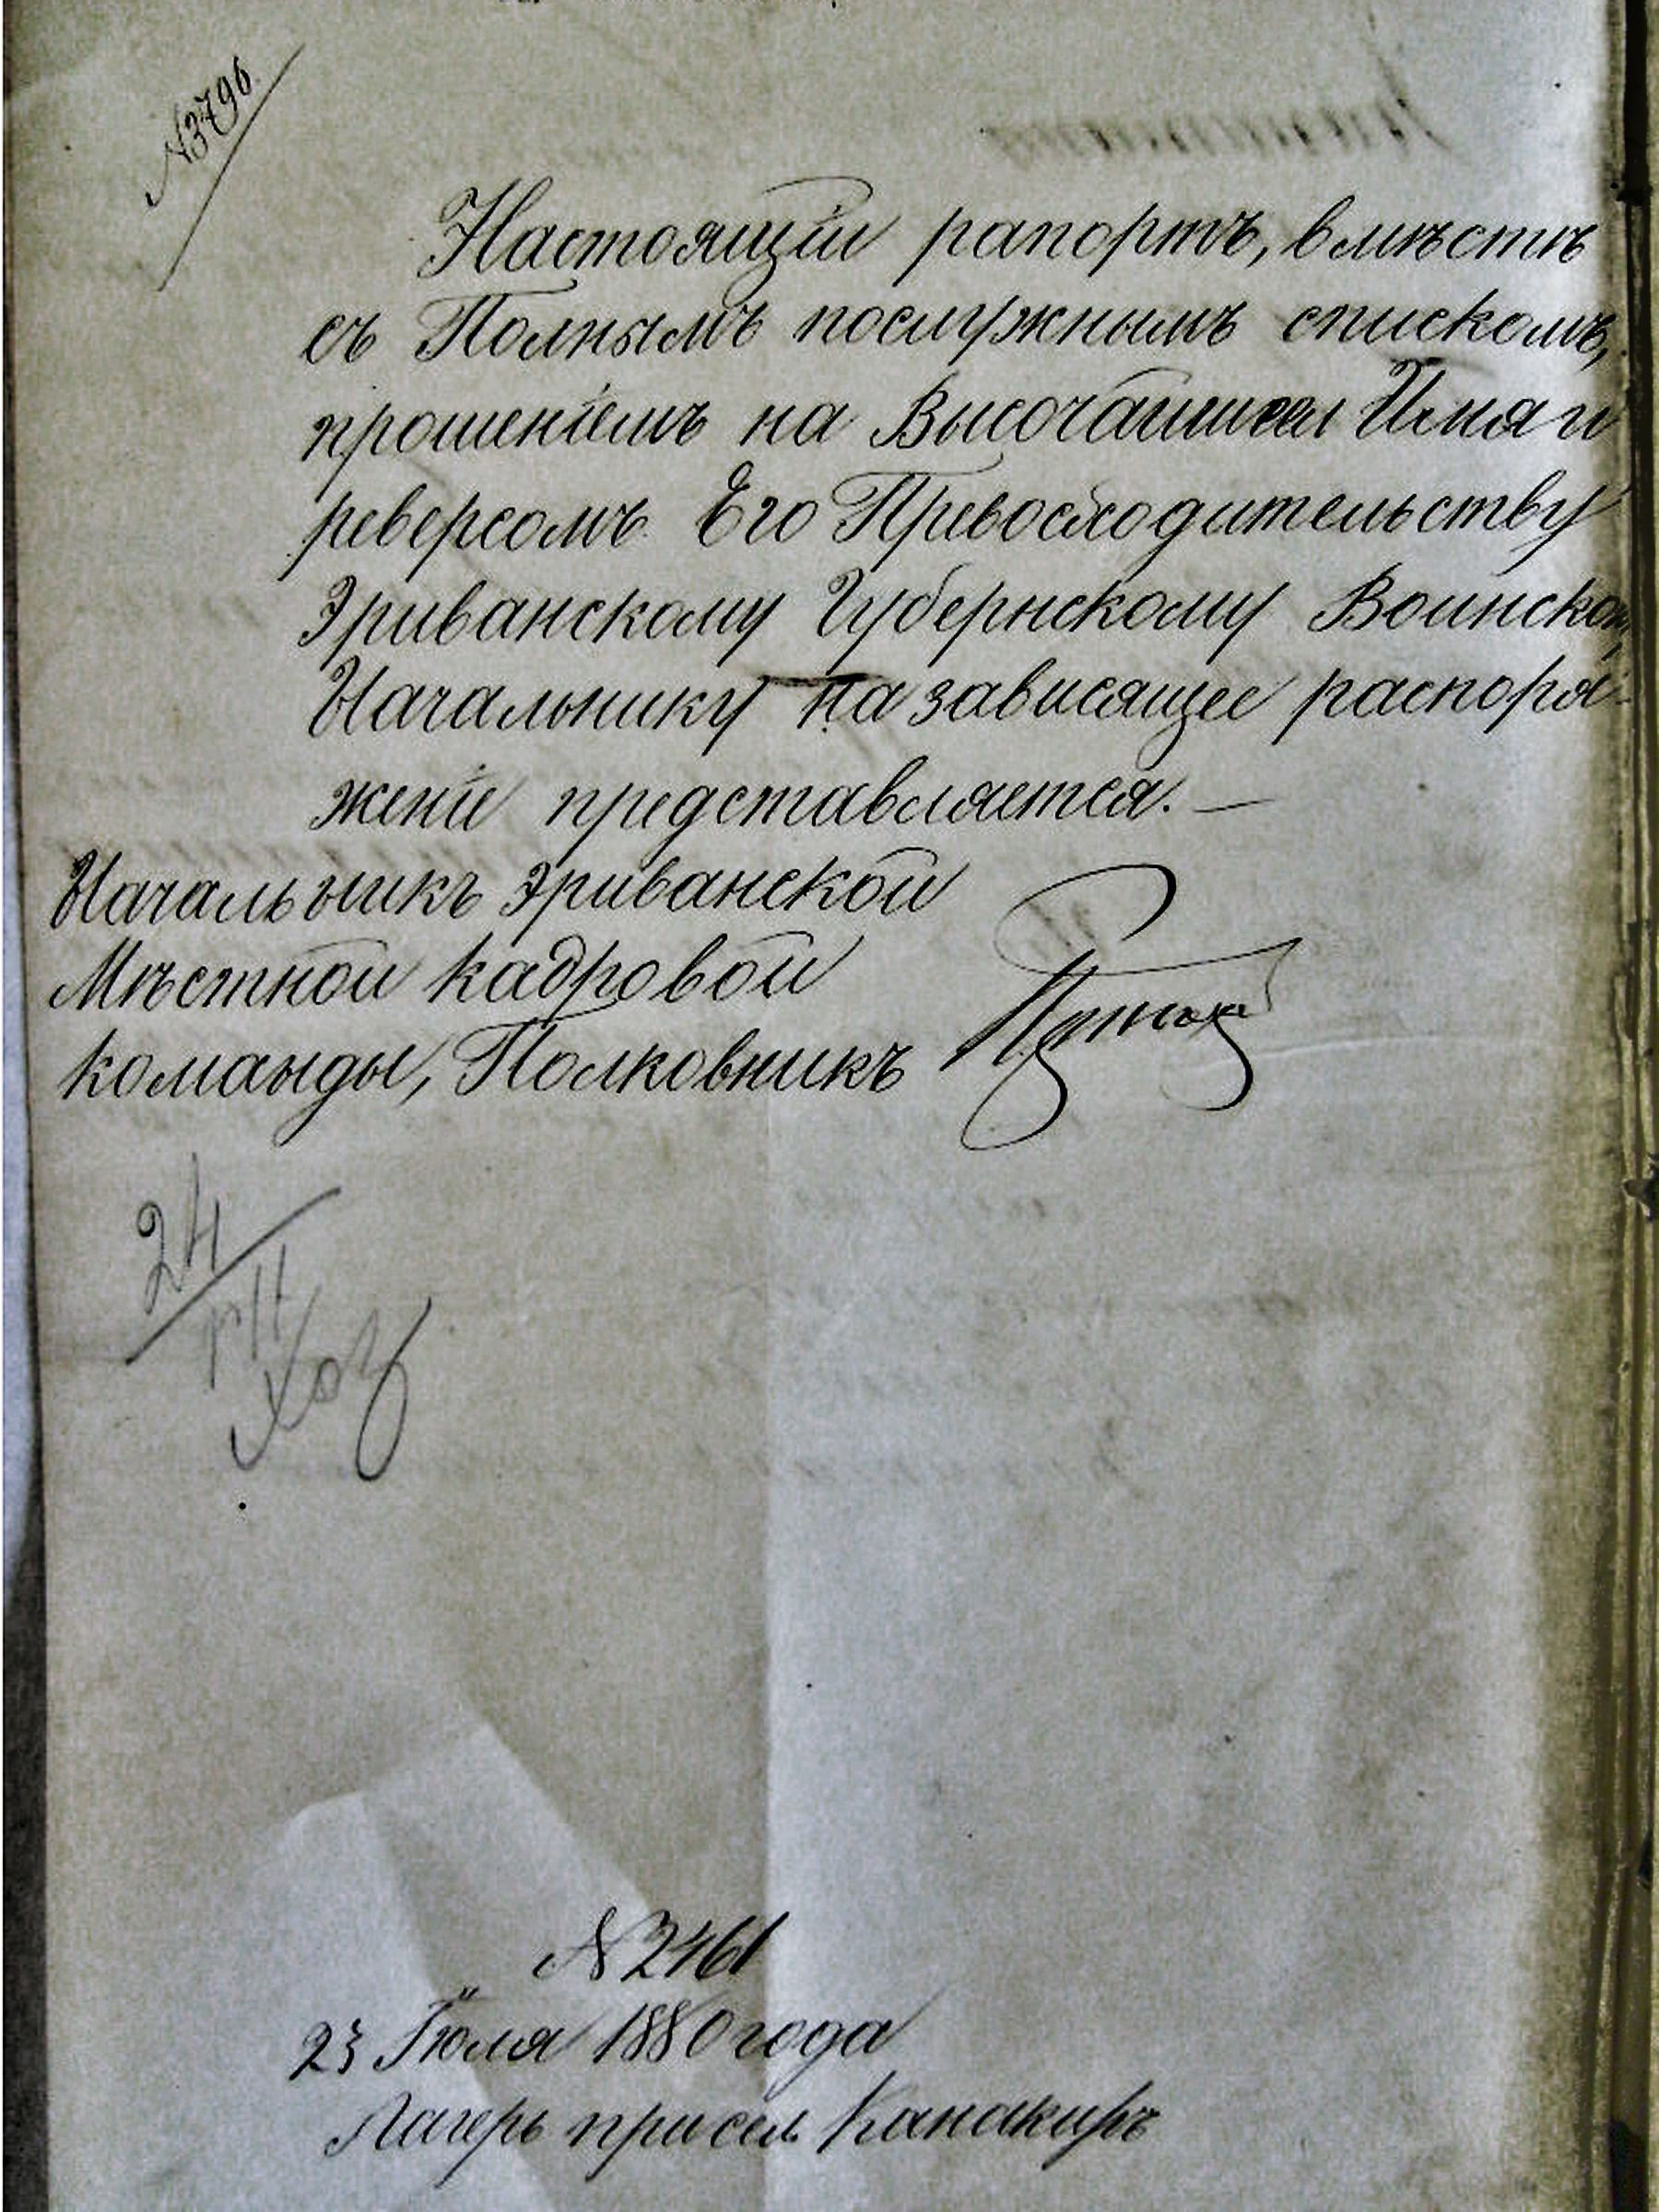 №3796
Настоящій рапортъ, вмѣстѣ
съ Полнымъ послужнымъ спискомъ,
прошеніемъ на Высочайшее Имя и
реверсомъ Его Превосходительству
Эриванскому Губернскому Воинском
Начальнику на зависящее распоря-
женіе представляется. —
Начальникъ Эриванской
Мѣстной кадровой
команды, Полковникъ
24
№2461
23 Іюля 1880 года
Лагерь при сел. Канакиръ